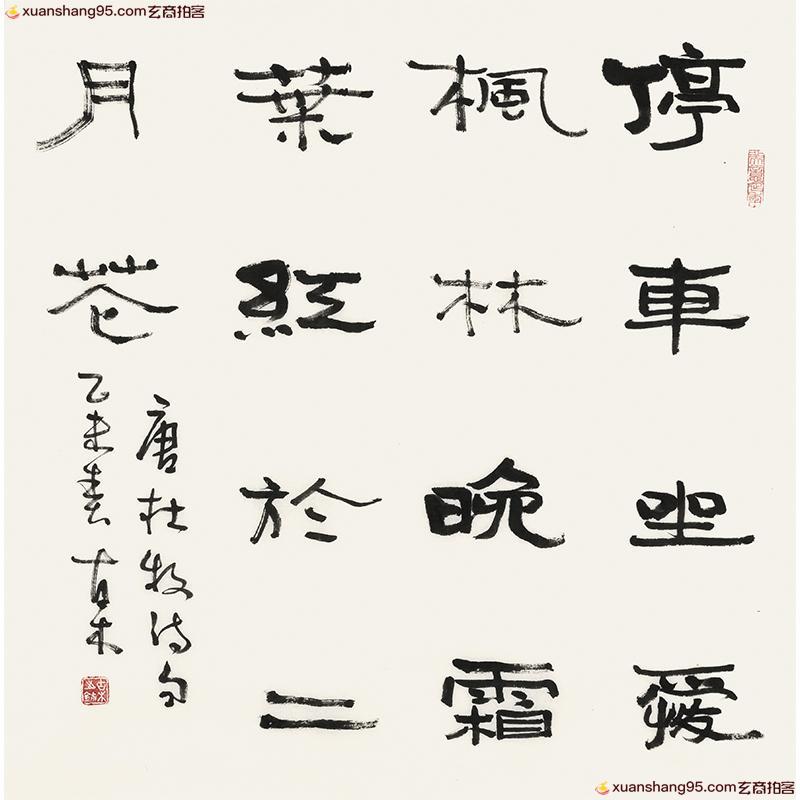 xuanshang95.com玄商拍客
xuanshang95.com玄商拍客
停車坐愛
楓林晚霜
葉紅於二
月花
唐杜牧詩句
乙未春 古木
xuanshang95.com玄商拍客